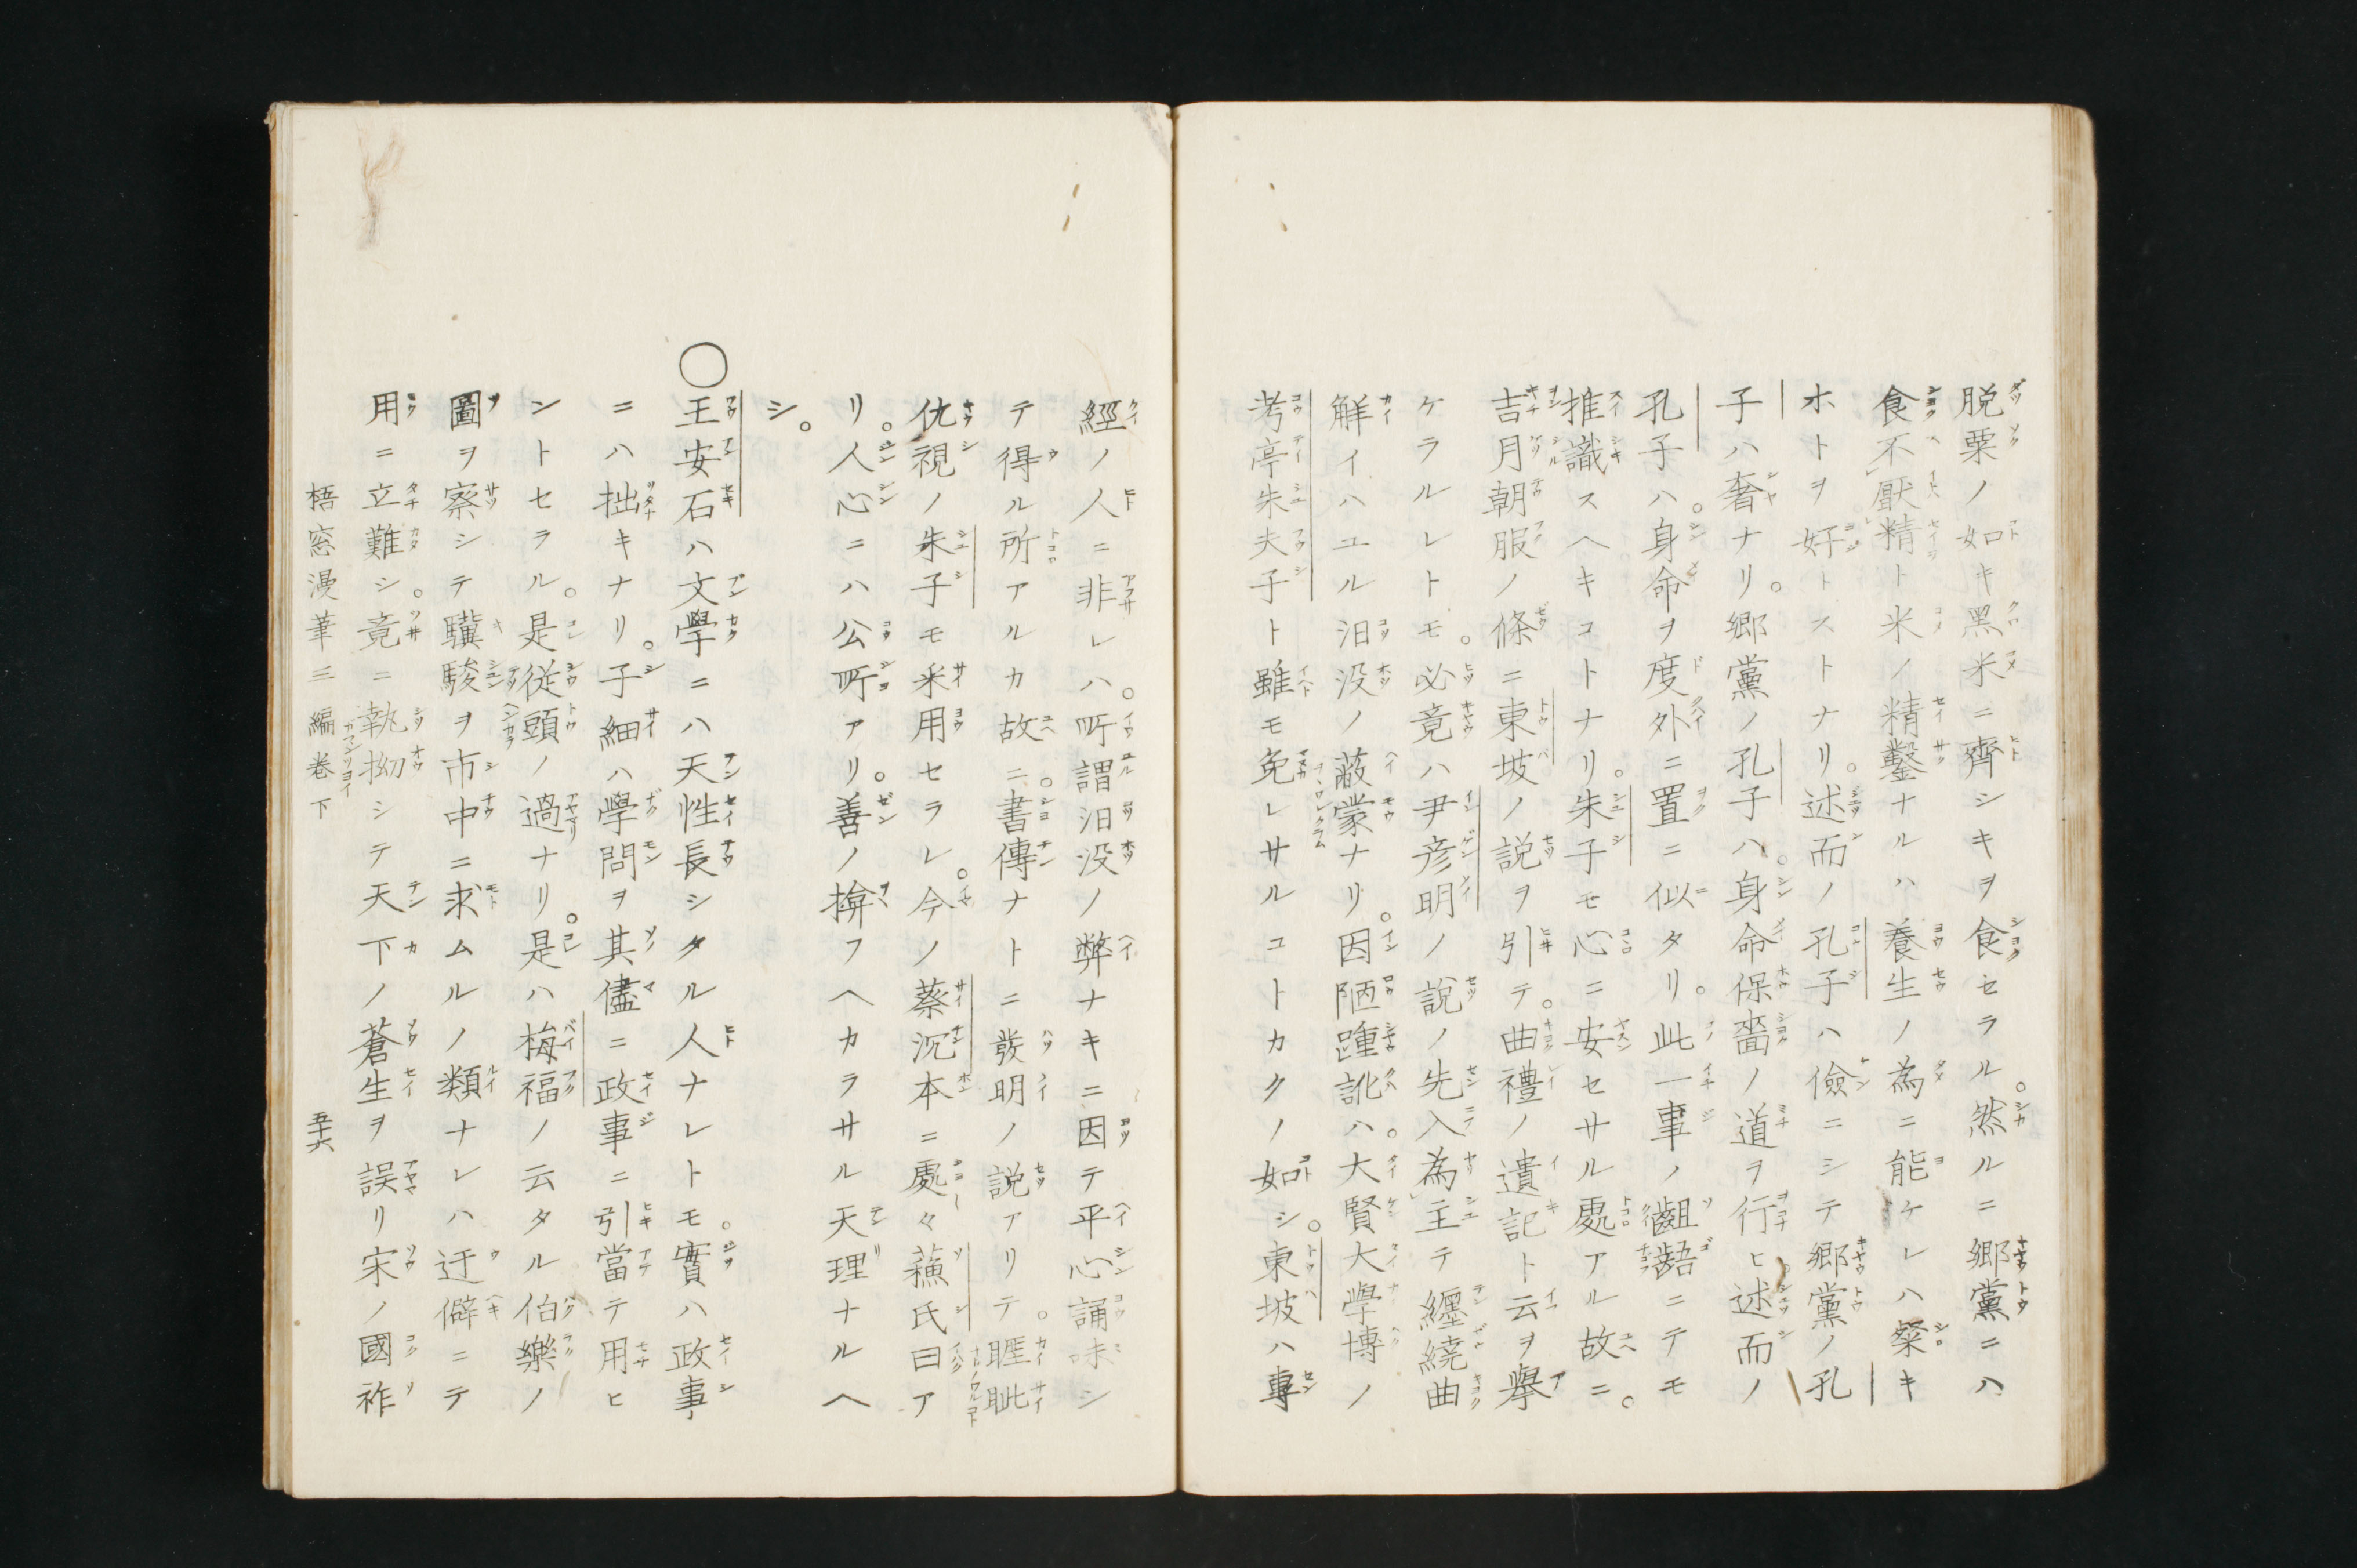 脱粟ノ如キ黑米ニ齊シキヲ食セラル。然ルニ郷黨ニハ
食不厭精ト米ノ精鑿ナルハ養生ノ為ニ能ケレハ粲キ
ホトヲ好トストナリ。述而ノ孔子ハ儉ニシテ郷黨ノ孔
子ハ奢ナリ。郷黨ノ孔子ハ。身命保嗇ノ道ヲ行ヒ。述而ノ
孔子ハ。身命ヲ度外ニ置ニ似タリ。此一事ノ齟齬ニテモ
推識スヘキコトナリ。朱子モ心ニ安セサル處アル故ニ。
吉月朝服ノ條ニ東坡ノ説ヲ引テ。曲禮ノ遺記ト云ヲ擧
ケラルレトモ。必竟ハ尹彦明ノ説ノ先入為主テ纒繞曲
解イハユル汨没ノ蔽蒙ナリ。因陋踵訛ハ。大賢大學博ノ
考亭朱夫子ト雖モ免レサルコトカクノ如シ。東坡ハ專
經ノ人ニ非レハ。所謂汨没ノ弊ナキニ因テ平心誦味シ
テ得ル所アルカ故ニ。書傳ナトニ發明ノ説アリテ。睚眦
仇視ノ朱子モ采用セラレ。今ノ蔡沉本ニ處々蘓氏曰ア
リ。人心ニハ公所アリ。善ノ揜フヘカラサル天理ナルヘ
シ。
〇王安石ハ文學ニハ天性長シタル人ナレトモ。實ハ政事
ニハ拙キナリ。子細ハ學問ヲ其儘ニ政事ニ引當テ用ヒ
ントセラル。是從頭ノ過ナリ。是ハ梅福ノ云タル伯樂ノ
圖ヲ察シテ驥駿ヲ市中ニ求ムルノ類ナレハ迂僻ニテ
用ニ立難シ。竟ニ執拗シテ天下ノ蒼生ヲ誤リ宋ノ國祚
梧窓漫筆三編卷下 五十六